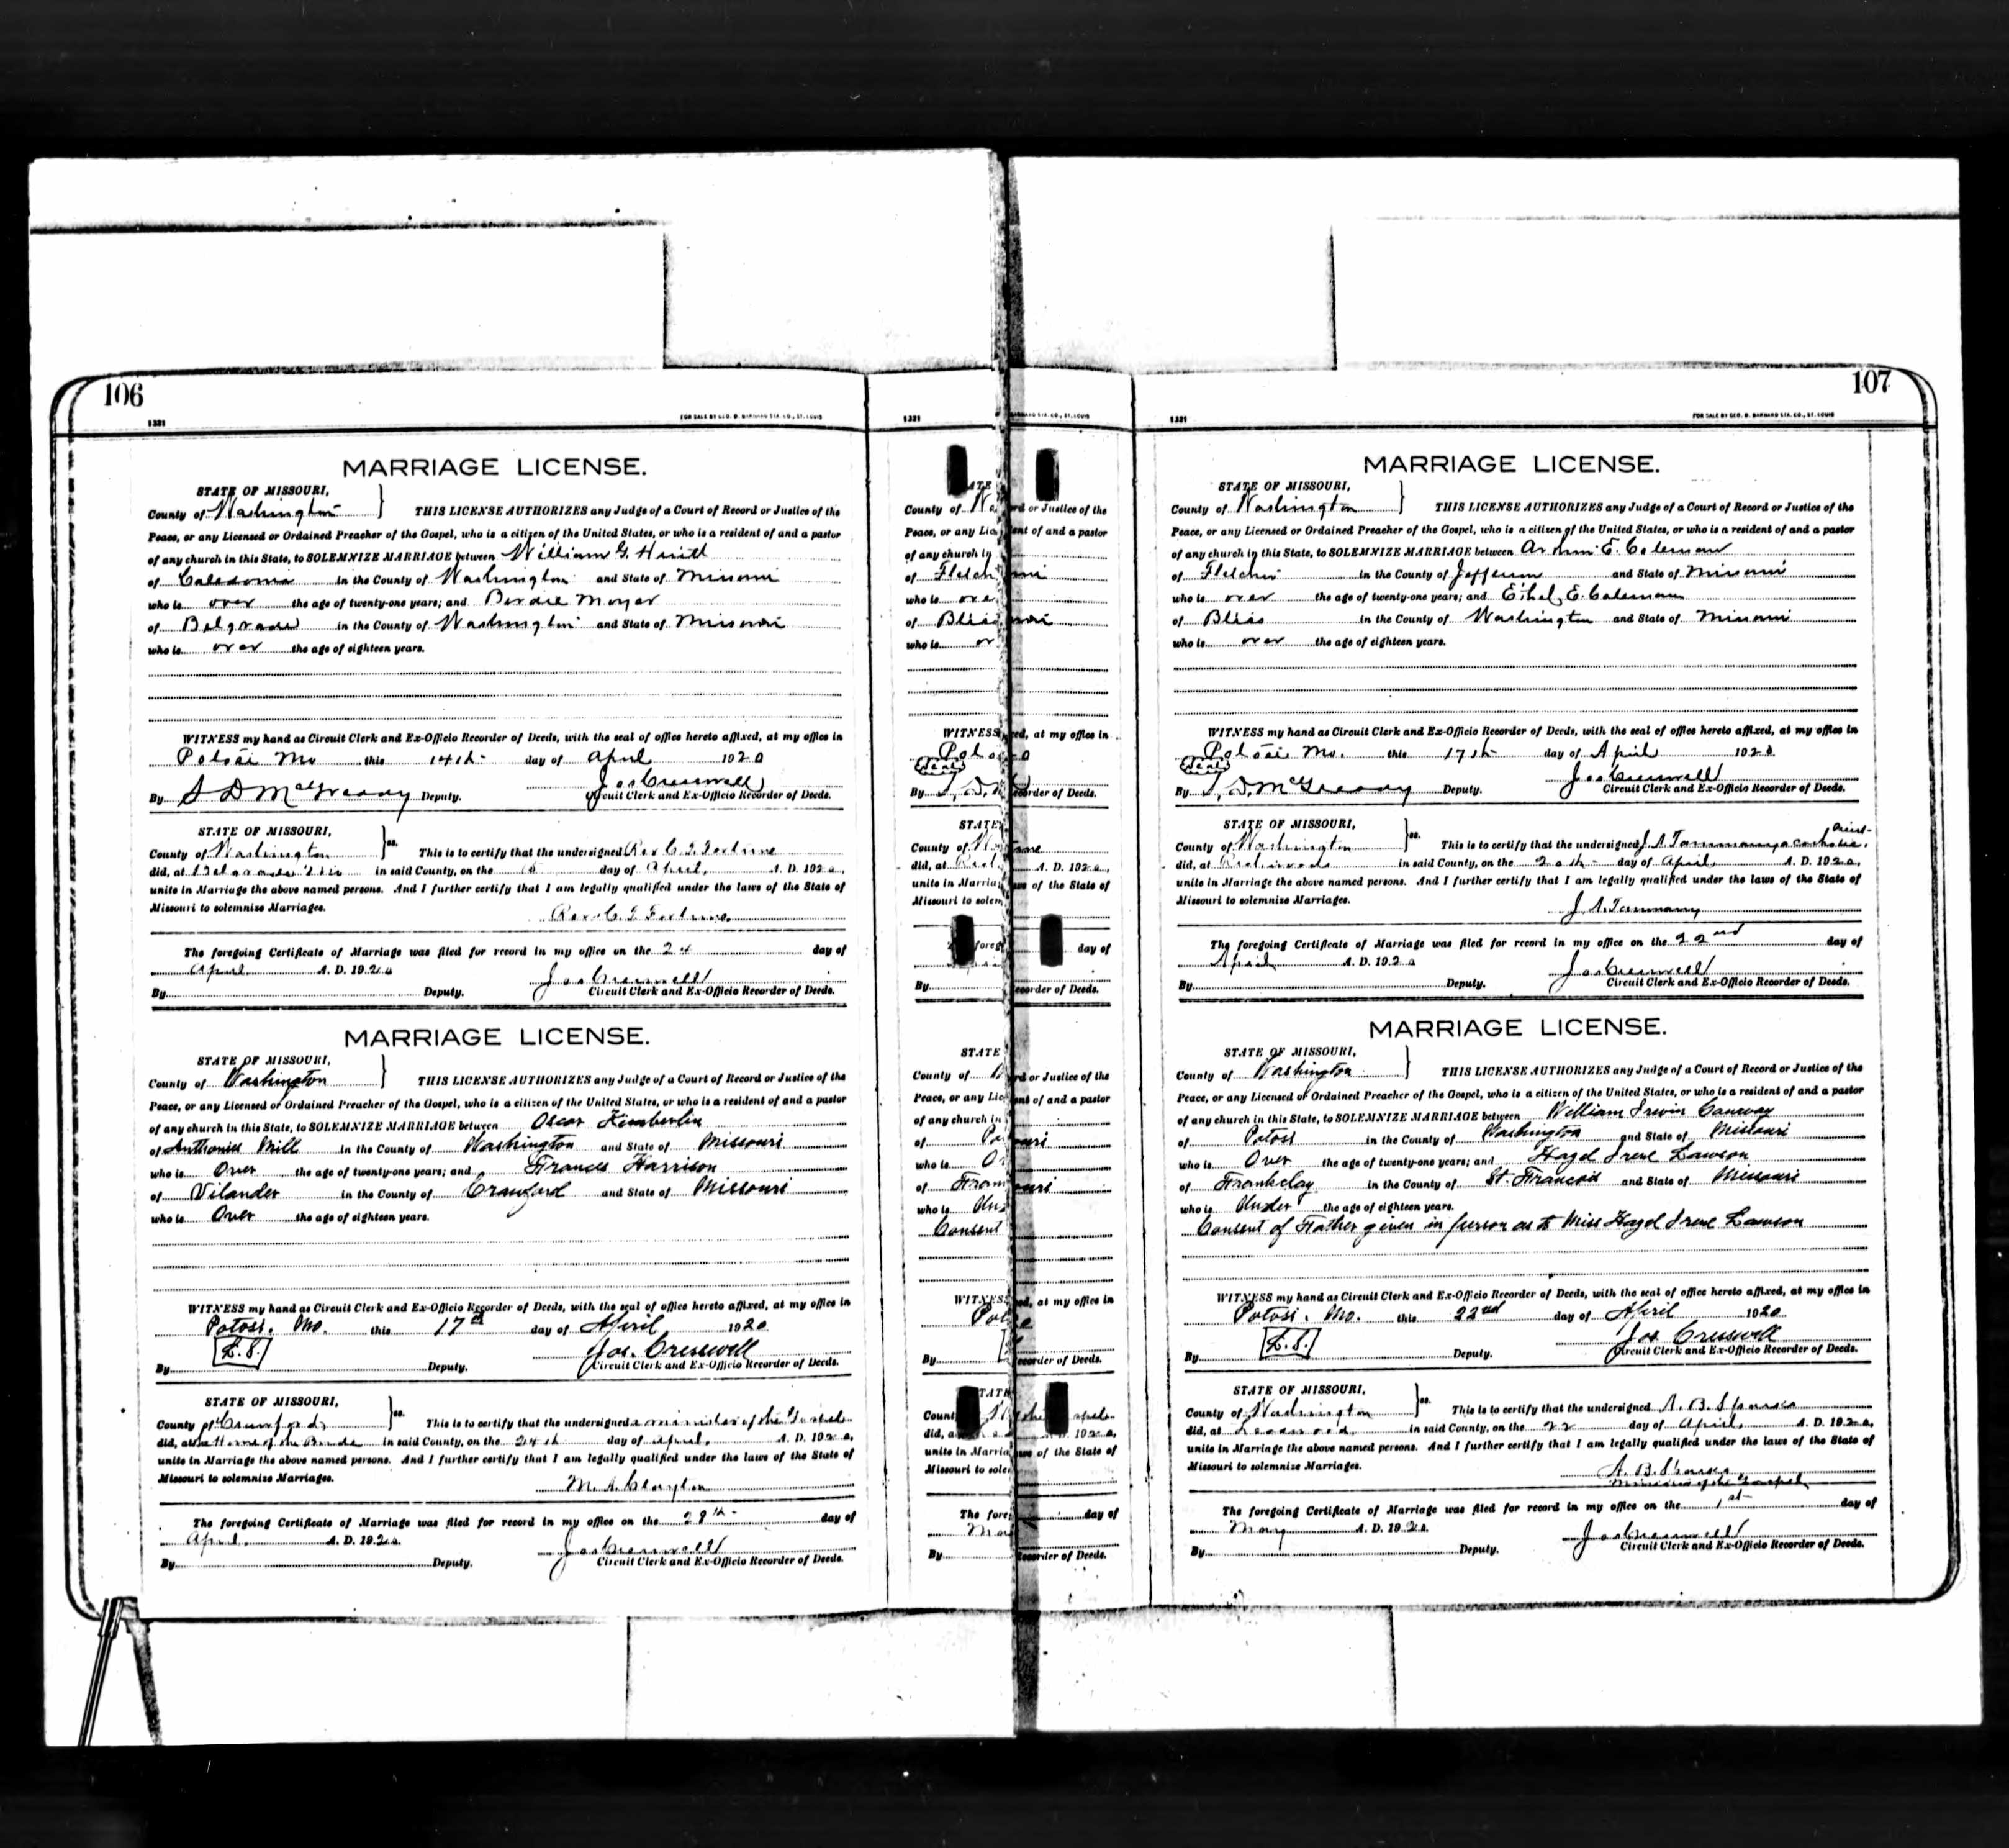 106
1321
FOR SALE BY GEO. D. BARNARD STA. CO., ST. LOUIS
MARRIAGE LICENSE.
STATE OF MISSOURI,
County of Washington THIS LICENSE AUTHORIZES any Judge of a Court of Record or Justice of the
Peace, or any Licensed or Ordained Preacher of the Gospel, who is a citizen of the United States, or who is a resident of and a pastor
of any church in this State, to SOLEMNIZE MARRIAGE between William G.
of Caledonia in the County of Washington and State of Missouri
who is over the age of twenty-one years; and Moyer
of Belgrade in the County of Washington and State of Missouri
who is over the age of eighteen years.
WITNESS my hand as Circuit Clerk and Ex-Officio Recorder of Deeds, with the seal of office hereto affixed, at my office in
Potosi Mo this 14th day of April 1920
Jos Cresswell
By S D McGready Deputy. Circuit Clerk and Ex-Officio Recorder of Deeds.
STATE OF MISSOURI,
County of Washington ss. This is to certify that the undersigned Rev C. T.
did, at Belgrade in said County, on the day of April, A. D. 1920,
unite in Marriage the above named persons. And I further certify that I am legally qualified under the laws of the State of
Missouri to solemnize Marriages.
Rev C. T.
The foregoing Certificate of Marriage was filed for record in my office on the day of
April A. D. 1920
Jos Cresswell
By Deputy. Circuit Clerk and Ex-Officio Recorder of Deeds.
MARRIAGE LICENSE.
STATE OF MISSOURI,
County of Washington THIS LICENSE AUTHORIZES any Judge of a Court of Record or Justice of the
Peace, or any Licensed or Ordained Preacher of the Gospel, who is a citizen of the United States, or who is a resident of and a pastor
of any church in this State, to SOLEMNIZE MARRIAGE between Oscar Kimberlin
of Anthonies Mill in the County of Washington and State of Missouri
who is Over the age of twenty-one years; and Frances Harrison
of Vilander in the County of Crawford and State of Missouri
who is Over the age of eighteen years.
WITNESS my hand as Circuit Clerk and Ex-Officio Recorder of Deeds, with the seal of office hereto affixed, at my office in
Potosi. Mo. this 17th day of April 1920
L.S. Jos. Cresswell
By Deputy. Circuit Clerk and Ex-Officio Recorder of Deeds.
STATE OF MISSOURI,
County of Crawford ss. This is to certify that the undersigned a minister of the Gospel
did, at the Home of the Bride in said County, on the 24th day of April, A. D. 1920,
unite in Marriage the above named persons. And I further certify that I am legally qualified under the laws of the State of
Missouri to solemnize Marriages.
M. A. Clayton
The foregoing Certificate of Marriage was filed for record in my office on the 28th day of
April. A. D. 1920
Jos Cresswell
By Deputy. Circuit Clerk and Ex-Officio Recorder of Deeds.
107
1321
FOR SALE BY GEO. D. BARNARD STA. CO., ST. LOUIS
MARRIAGE LICENSE.
STATE OF MISSOURI,
County of Washington THIS LICENSE AUTHORIZES any Judge of a Court of Record or Justice of the
Peace, or any Licensed or Ordained Preacher of the Gospel, who is a citizen of the United States, or who is a resident of and a pastor
of any church in this State, to SOLEMNIZE MARRIAGE between E. Coleman
of Fletcher in the County of Jefferson and State of Missouri
who is over the age of twenty-one years; and Ethel E. Coleman
of Bliss in the County of Washington and State of Missouri
who is over the age of eighteen years.
WITNESS my hand as Circuit Clerk and Ex-Officio Recorder of Deeds, with the seal of office hereto affixed, at my office in
Potosi Mo. this 17th day of April 1920
Seal Jos Cresswell
By S. D. McGready Deputy. Circuit Clerk and Ex-Officio Recorder of Deeds.
STATE OF MISSOURI,
County of Washington ss. This is to certify that the undersigned J. A. Tammany a Catholic Priest
did, at Richwoods in said County, on the 20th day of April, A. D. 1920,
unite in Marriage the above named persons. And I further certify that I am legally qualified under the laws of the State of
Missouri to solemnize Marriages.
J. A. Tammany
The foregoing Certificate of Marriage was filed for record in my office on the 22nd day of
April A. D. 1920
Jos Cresswell
By Deputy. Circuit Clerk and Ex-Officio Recorder of Deeds.
MARRIAGE LICENSE.
STATE OF MISSOURI,
County of Washington THIS LICENSE AUTHORIZES any Judge of a Court of Record or Justice of the
Peace, or any Licensed or Ordained Preacher of the Gospel, who is a citizen of the United States, or who is a resident of and a pastor
of any church in this State, to SOLEMNIZE MARRIAGE between William Irwin Conway
of Potosi in the County of Washington and State of Missouri
who is Over the age of twenty-one years; and Hazel Irene Lawson
of Frankclay in the County of St. Francois and State of Missouri
who is Under the age of eighteen years.
Consent of Father given in person as to Miss Hazel Irene Lawson
WITNESS my hand as Circuit Clerk and Ex-Officio Recorder of Deeds, with the seal of office hereto affixed, at my office in
Potosi. Mo. this 22nd day of April 1920
L.S. Jos Cresswell
By Deputy. Circuit Clerk and Ex-Officio Recorder of Deeds.
STATE OF MISSOURI,
County of Washington ss. This is to certify that the undersigned A. B.
did, at Leadwood in said County, on the 22 day of April, A. D. 1920,
unite in Marriage the above named persons. And I further certify that I am legally qualified under the laws of the State of
Missouri to solemnize Marriages.
A. B.
Minister of the Gospel
The foregoing Certificate of Marriage was filed for record in my office on the 1st day of
May A. D. 1920.
Jos Cresswell
By Deputy. Circuit Clerk and Ex-Officio Recorder of Deeds.